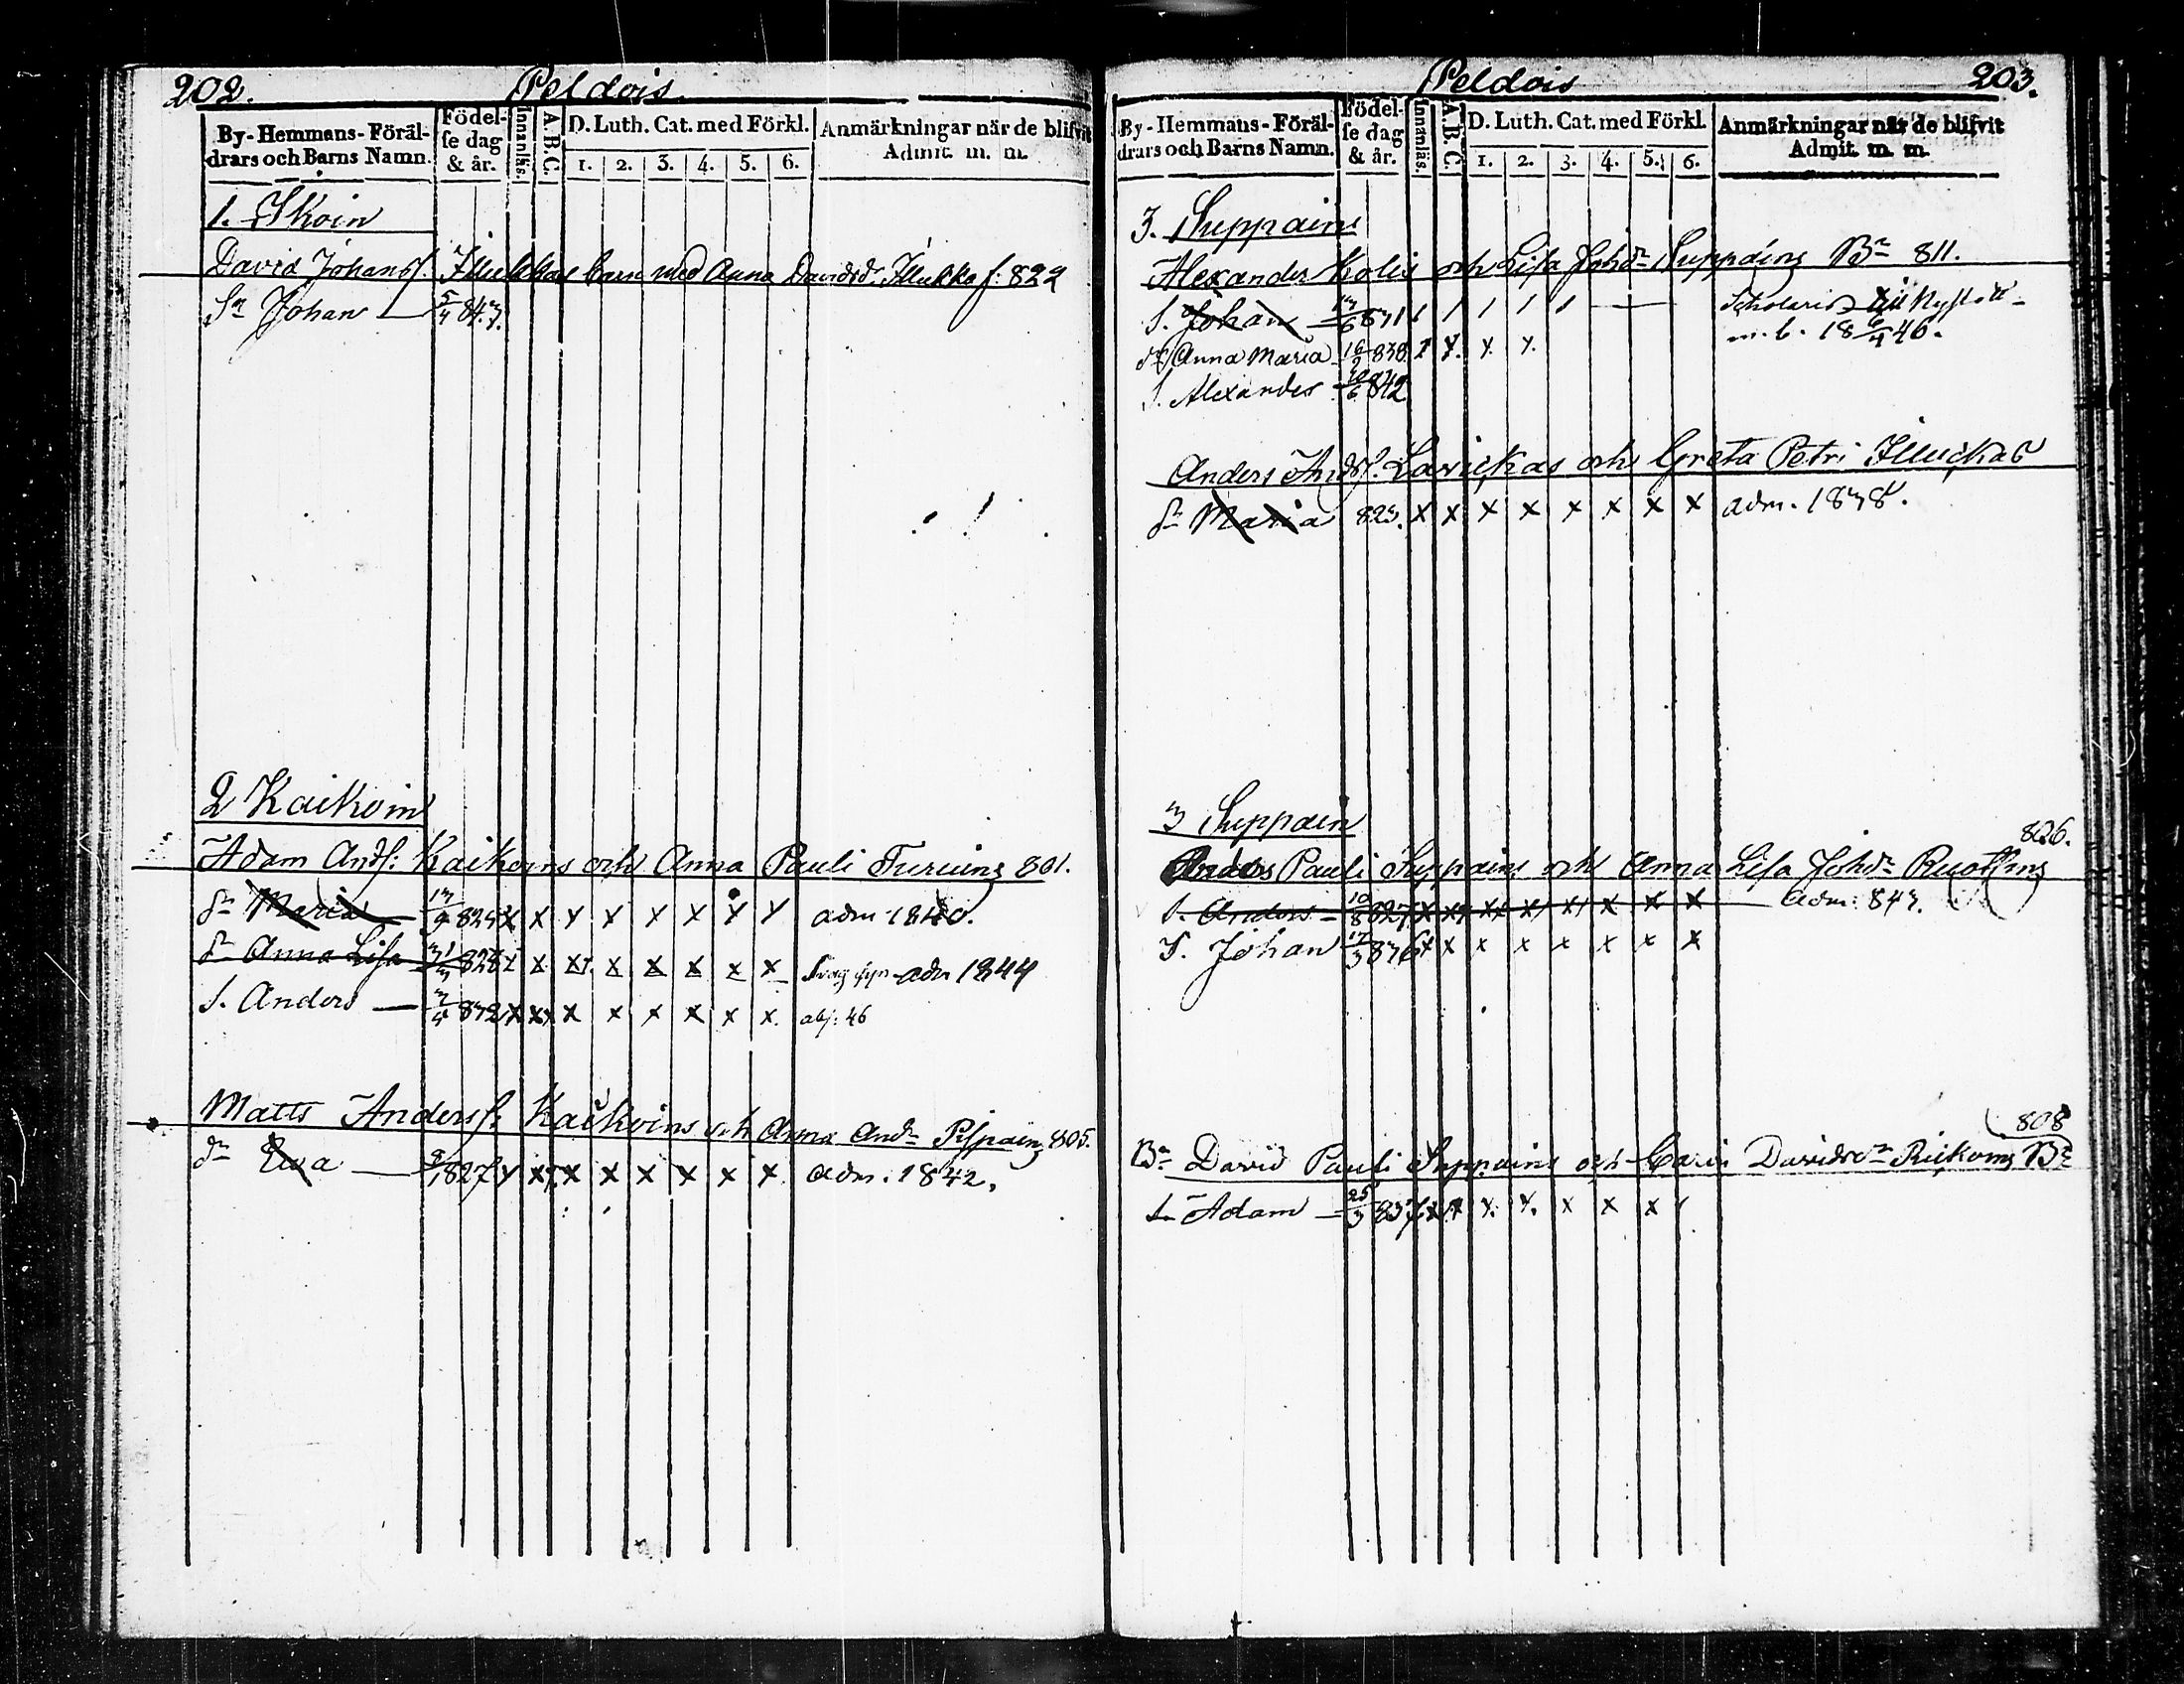 202. Peldois
By-Hemmans-Föräl-
drars och Barns Namn.
Födel-
se dag
& år.
Innanläs.
A.B.C.
D. Luth. Cat. med Förkl.
1. 2. 3. 4. 5. 6.
Anmärkningar när de blifvit
Admit. m. m.
1. Skoin
David Johansf. Illukkas barn med Anna Davidsd. Illukka f: 822
Sn Johan 5/4 843.
2 Kaikoin
Adam Andf: Kaikoins och Anna Pauli Turuins 801.
dr Maria 824 x x x x x x x x adm. 1840.
dr Anna Lisa 828 x x x x x x x x Svag syn adm 1844
S. Anders 832 x x x x x x x x abs: 46
Matts Andersf: Kaikoins och Anna Andr Pispain 805.
dr Eva 827 x x x x x x x x adm. 1842.
Peldois 203.
By-Hemmans-Föräl-
drars och Barns Namn.
Födel-
se dag
& år.
Innanläs.
A.B.C.
D. Luth. Cat. med Förkl.
1. 2. 3. 4. 5. 6.
Anmärkningar när de blifvit
Admit. m. m.
3. Suppains
Alexander Kolis och Lisa Johdr Suppains Br 811.
S. Johan 13/6 831 Scholaris Nyslott
m. b. 18 6/4 46.
dr Anna Maria 16/2 838 x x x x
S. Alexander 842
Anders Andsf. Lavikas och Greta Petri Illukas
dr Maria 823. x x x x x x x x adm. 1838.
3 Suppain
826.
Anders Pauli Suppains och Anna Lisa Johdr Ruottins
S. Anders 10/8 827 x x x x x x x x adm: 843.
S. Johan 17/3 836 x x x x x x x x
808
Br David Pauli Suppains och Carin Davidsdr Rickoins Br
S. Adam 25/3 837 x x x x x x x